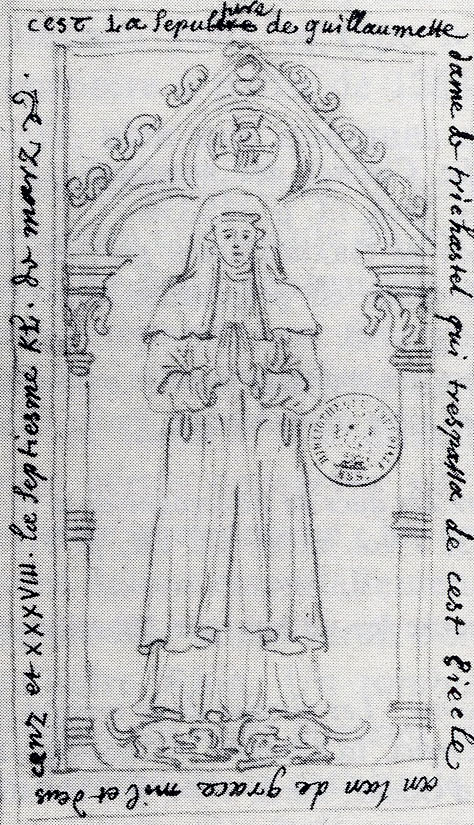 cest La Sepulture de guillaumette
dame de trichastel qui trespassa de cest siecle
en lan de grace mil et deus
cenz et XXXVIII. la septiesme KL. de marz
BIBLIOTHEQUE IMPERIALE
MSS.